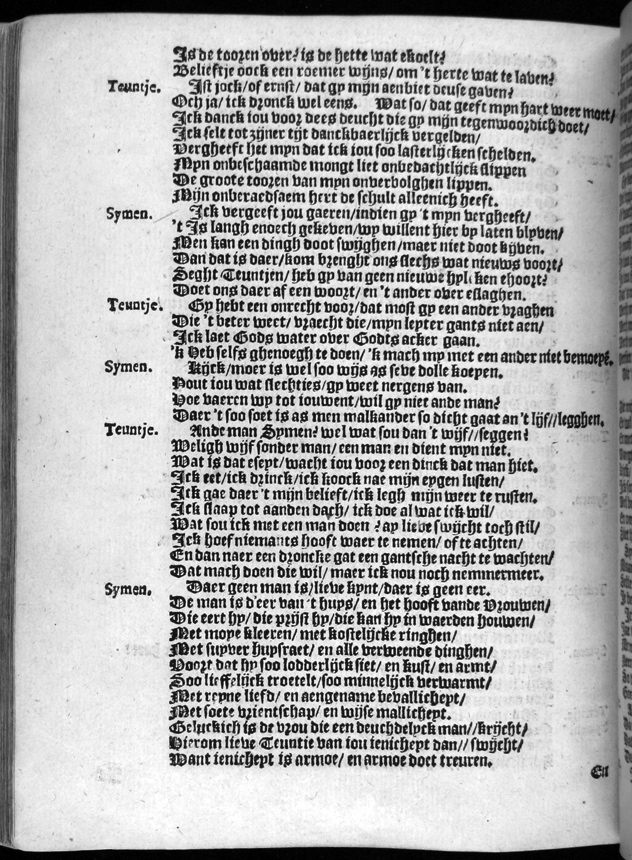 Is de tooren over? is de hette wat ekoelt?
Belieftje oock een roemer wijns/ om 't herte wat te laven?
Teuntje. Ist jock/ of ernst/ dat gy mijn aenbiet deuse gaven?
Och ja/ ick dronck wel eens. Wat so/ dat geeft myn hart weer moet/
Ick danck jou voor dees deucht die gy mijn tegenwoordich doet/
Ick selt tot zijner tijt danckbaerlijck vergelden/
Vergheeft het mijn dat ick jou soo lasterlijcken schelden.
Myn onbeschaamde mongt liet onbedachtlijck slippen
De groote toozen van myn onverbolghen lippen.
Mijn onberaedsaem hert de schult alleenich heeft.
Symen. Ick vergeeft jou gaeren/ indien gy 't myn vergheeft/
't Is langh enoech gekeven/ wy willent hier by laten blyven/
Men kan een dingh doot swijghen/ maer niet doot kijven.
Dan dat is daer/ kom brenght ons slechs wat nieuws voort/
Seght Teuntjen/ heb gy van geen nieuwe hylicken ehoort?
Doet ons daer af een woort/ en 't ander over eslaghen.
Teuntje. Gy hebt een onrecht voor/ dat most gy een ander vraghen
Die 't beter weet/ vraecht die/ myn leyter gants niet aen/
Ick laet Gods water over Godts acker gaan.
'k Heb selfs ghenoegh te doen/ 'k mach my met een ander niet bemoeyē.
Symen. Kijck/ moer is wel soo wijs as seve dolle koeyen.
Hout jou wat slechtjes/ gy weet nergens van.
Hoe vaeren wy tot jouwent/ wil gy niet ande man?
Daer 't soo soet is as men malkander so dicht gaat an't lijf//legghen.
Teuntje. Ande man Symen? wel wat sou dan 't wijf//seggen?
Weligh wijf sonder man/ een man en dient myn niet.
Wat is dat eseyt/ wacht jou voor een dinck dat man hiet.
Ick eet/ ick drinck/ ick koock nae mijn eygen lusten/
Ick gae daer 't mijn belieft/ ick legh mijn weer te rusten.
Ick slaap tot aanden dach/ ick doe al wat ick wil/
Wat sou ick met een man doen? ay lieve swijcht toch stil/
Ick hoef niemants hooft waer te nemen/ of te achten/
En dan naer een droncke gat een gantsche nacht te wachten/
Dat mach doen die wil/ maer ick nou noch nemmermeer.
Symen. Daer geen man is/ lieve kynt/ daer is geen eer.
De man is d'eer van 't huys/ en het hooft vande Vrouwen/
Die eert hy/ die prijst hy/ die kan hy in waerden houwen/
Met moye kleeren/ met kostelijcke ringhen/
Met suyver huysraet/ en alle verweende dinghen/
Voort dat hy soo lodderlijck siet/ en kust/ en armt/
Soo lieffelijck troetelt/ soo minnelijck verwarmt/
Met reyne liefd/ en aengename bevallicheyt/
Met soete vrientschap/ en wijse mallicheyt.
Geluckich is de vrou die een deuchdelyck man//krijcht/
Hierom lieve Teuntie van jou jenicheyt dan//swijcht/
Want jenicheyt is armoe/ en armoe doet treuren.
En